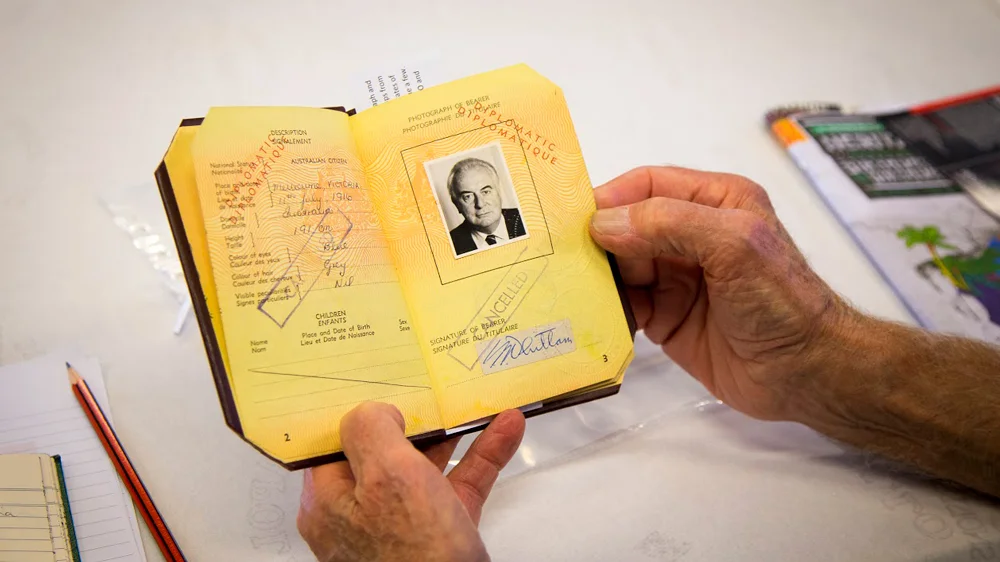 DESCRIPTION
SIGNALEMENT
National Status
Nationalité
AUSTRALIAN CITIZEN
Place
of birth
Melbourne Victoria
11th July, 1916
Domicile
Domicile
Australia
Height
Taille
Colour of eyes
Couleur des yeux
Blue
Colour of hair
Couleur des cheveux
Grey
Visible peculiarities
Signes particuliers
Nil
CHILDREN
ENFANTS
Name
Nom
Place and Date of Birth
Lieu et Date de Naissance
Sex
Sexe
2
PHOTOGRAPH OF BEARER
PHOTOGRAPHIE DU TITULAIRE
DIPLOMATIC
DIPLOMATIQUE
CANCELLED
SIGNATURE OF BEARER
SIGNATURE DU TITULAIRE
EGWhitlam
3